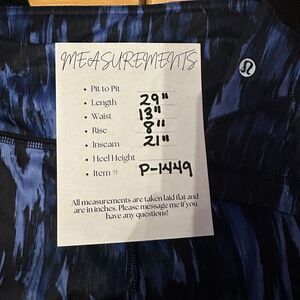 MEASUREMENTS
• Pit to Pit
• Length 29"
• Waist 13"
• Rise 8"
• Inseam 21"
• Heel Height
• Item # P-1449
All measurements are taken laid flat and
are in inches. Please message me if you
have any questions!